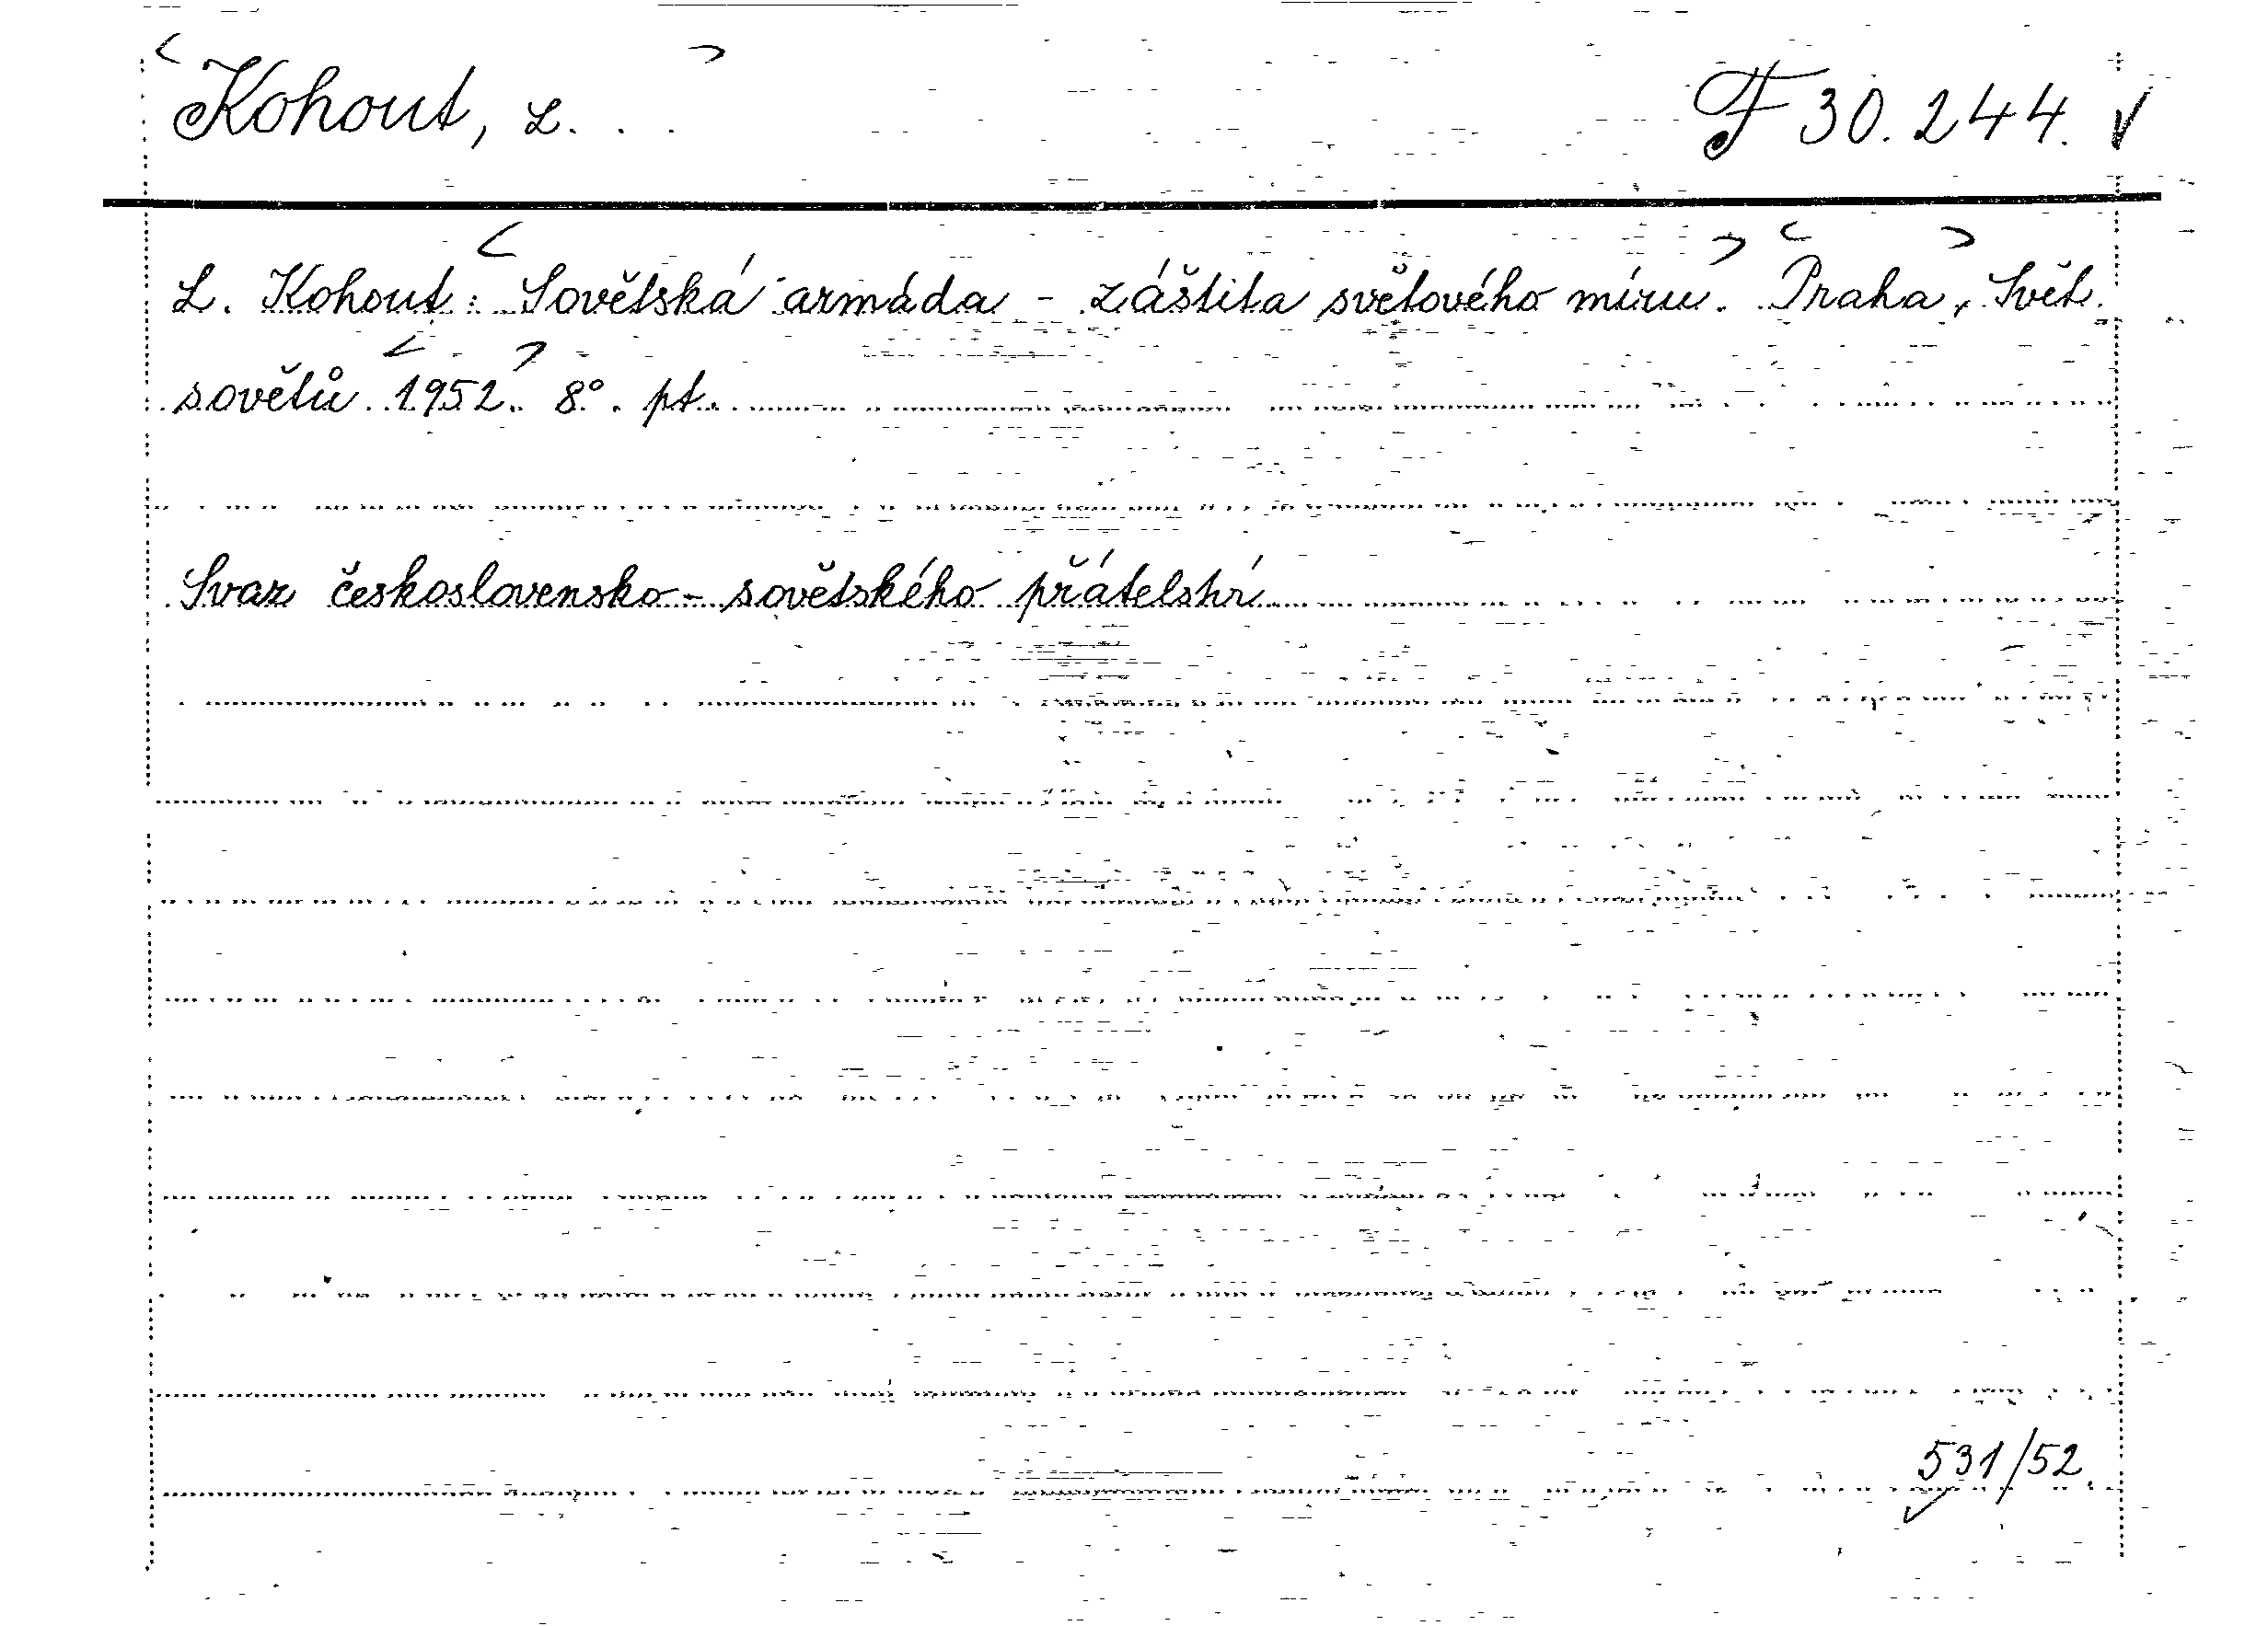 Kohout, L. . . F 30.244.
L. Kohout: Sovětská armáda - záštita světového míru. Praha, Svět
sovětů 1952. 8°. pt.
Svaz československo-sovětského přátelství
531/52.